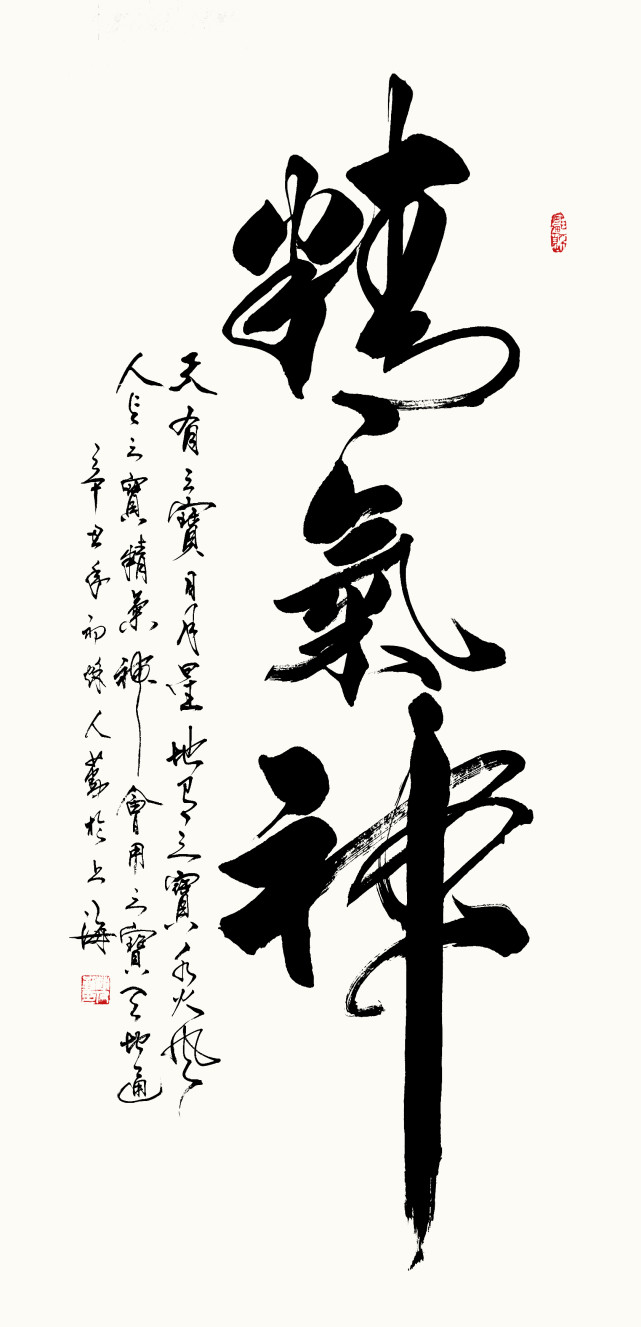 精氣神
天有三寶日月星地有三寶水火風
人有三寶精氣神會用三寶天地通
辛丑年初
人
於上海